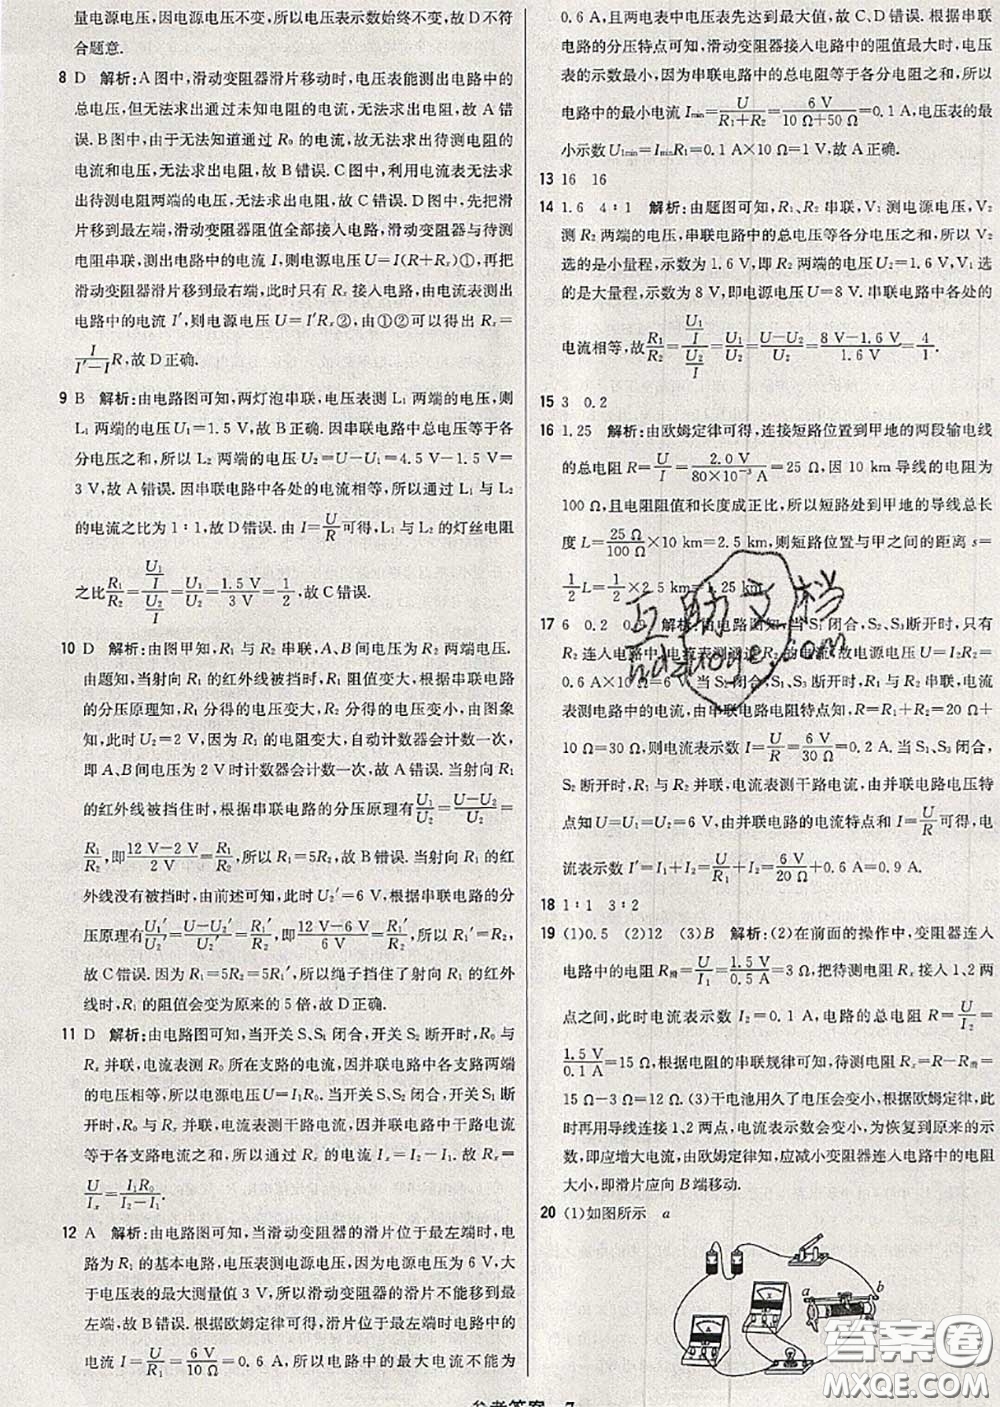 量电源电压,因电源电压不变,所以电压表示数始终不变,故 D 不符
合题意.
8 D 解析:A 图中,滑动变阻器滑片移动时,电压表能测出电路中的
总电压,但无法求出通过未知电阻的电流,无法求出电阻,故 A 错
误. B 图中,由于无法知道通过 R₀ 的电流,故无法求出待测电阻
的电流和电压,无法求出电阻,故 B 错误. C 图中,利用电流表无法
求出待测电阻两端的电压,无法求出电阻,故 C 错误. D 图中,先把滑
片移到最左端,滑动变阻器阻值全部接入电路,滑动变阻器与待测
电阻串联,测出电路中的电流 I,则电源电压 U=I(R+Rₓ)①,再把
滑动变阻器滑片移到最右端,此时只有 Rₓ 接入电路,由电流表测出
电路中的电流 I′,则电源电压 U=I′Rₓ②,由①②可以得出 Rₓ=
I/(I′-I)R,故 D 正确.
9 B 解析:由电路图可知,两灯泡串联,电压表测 L₁ 两端的电压,则
L₁ 两端的电压 U₁=1.5 V,故 B 正确. 因串联电路中总电压等于各
分电压之和,所以 L₂ 两端的电压 U₂=U-U₁=4.5 V-1.5 V=
3 V,故 A 错误. 因串联电路中各处的电流相等,所以通过 L₁ 与 L₂
的电流之比为 1∶1,故 D 错误. 由 I=U/R 可得,L₁ 与 L₂ 的灯丝电阻
之比 R₁/R₂=(U₁/I)/(U₂/I)=U₁/U₂=1.5 V/3 V=1/2,故 C 错误.
10 D 解析:由图甲知,R₁ 与 R₂ 串联,A、B 间电压为 R₂ 两端电压.
由题知,当射向 R₁ 的红外线被挡时,R₁ 阻值变大,根据串联电路
的分压原理知,R₁ 分得的电压变大,R₂ 分得的电压变小,由图象
知,此时 U₂=2 V,因为 R₁ 的电阻变大,自动计数器会计数一次,
即 A、B 间电压为 2 V 时计数器会计数一次,故 A 错误. 当射向 R₁
的红外线被挡住时,根据串联电路的分压原理有 U₁/U₂=(U-U₂)/U₂=
R₁/R₂,即(12 V-2 V)/2 V=R₁/R₂,所以 R₁=5R₂,故 B 错误. 当射向 R₁ 的红
外线没有被挡时,由前述可知,U₂′=6 V,根据串联电路的分
压原理有 U₁′/U₂′=(U-U₂′)/U₂′=R₁′/R₂,即(12 V-6 V)/6 V=R₁′/R₂,所以 R₁′=R₂,
故 C 错误. 因为 R₁=5R₂=5R₁′,所以绳子挡住了射向 R₁ 的红外
线时,R₁ 的阻值会变为原来的 5 倍,故 D 正确.
11 D 解析:由电路图可知,当开关 S、S₁ 闭合,开关 S₂ 断开时,R₀ 与
Rₓ 并联,电流表测 R₀ 所在支路的电流,因并联电路中各支路两端
的电压相等,所以电源电压 U=I₁R₀. 当开关 S、S₂ 闭合,开关 S₁ 断
开时,R₀ 与 Rₓ 并联,电流表测干路电流,因并联电路中干路电流
等于各支路电流之和,所以通过 Rₓ 的电流 Iₓ=I₂-I₁,所以 Rₓ=
U/Iₓ=I₁R₀/(I₂-I₁).
12 A 解析:由电路图可知,当滑动变阻器的滑片位于最左端时,电
路为 R₁ 的基本电路,电压表测电源电压,因为电源电压为 6 V,大
于电压表的最大测量值 3 V,所以滑动变阻器的滑片不能移到最
左端,故 B 错误. 根据欧姆定律可得,滑片位于最左端时电路中的
电流 I=U/R₁=6 V/10 Ω=0.6 A,所以电路中的最大电流不能为
0.6 A,且两电表中电压表先达到最大值,故 C、D 错误. 根据串联
电路的分压特点可知,滑动变阻器接入电路中的阻值最大时,电压
表的示数最小,因为串联电路中的总电阻等于各分电阻之和,所以
电路中的最小电流 Iₘᵢₙ=U/(R₁+R₂)=6 V/(10 Ω+50 Ω)=0.1 A,电压表的最
小示数 U₁ₘᵢₙ=IₘᵢₙR₁=0.1 A×10 Ω=1 V,故 A 正确.
13 16 16
14 1.6 4∶1 解析:由题图可知,R₁、R₂ 串联,V₁ 测电源电压,V₂
测 R₂ 两端的电压,串联电路中的总电压等各分电压之和,所以 V₂
选的是小量程,示数为 1.6 V,即 R₂ 两端的电压 U₂=1.6 V,V₁ 选
的是大量程,示数为 8 V,即电源电压 U=8 V. 串联电路中各处的
电流相等,故 R₁/R₂=(U₁/I)/(U₂/I)=U₁/U₂=(U-U₂)/U₂=(8 V-1.6 V)/1.6 V=4/1.
15 3 0.2
16 1.25 解析:由欧姆定律可得,连接短路位置到甲地的两段输电线
的总电阻 R=U/I=2.0 V/(80×10⁻³ A)=25 Ω,因 10 km 导线的电阻为
100 Ω,且电阻阻值和长度成正比,所以短路处到甲地的导线总长
度 L=25 Ω/100 Ω×10 km=2.5 km,则短路位置与甲之间的距离 s=
1/2 L=1/2×2.5 km=1.25 km.
17 6 0.2 0.9 解析:由电路图知,当 S₁ 闭合,S₂、S₃ 断开时,只有
R₂ 连入电路中,电流表测通过 R₂ 的电流,故电源电压 U=I₂R₂=
0.6 A×10 Ω=6 V. 当 S₂ 闭合,S₁、S₃ 断开时,R₁ 与 R₂ 串联,电流
表测电路中的电流,由串联电路电阻特点知,R=R₁+R₂=20 Ω+
10 Ω=30 Ω,则电流表示数 I=U/R=6 V/30 Ω=0.2 A. 当 S₁、S₃ 闭合,
S₂ 断开时,R₁ 与 R₂ 并联,电流表测干路电流,由并联电路电压特
点知 U=U₁=U₂=6 V,由并联电路的电流特点和 I=U/R 可得,电
流表示数 I′=I₁+I₂=U/R₁+I₂=6 V/20 Ω+0.6 A=0.9 A.
18 1∶1 3∶2
19 (1)0.5 (2)12 (3)B 解析:(2)在前面的操作中,变阻器连入
电路中的电阻 R滑=U/I₁=1.5 V/0.5 A=3 Ω,把待测电阻 Rₓ 接入 1、2 两
点之间,此时电流表示数 I₂=0.1 A,电路的总电阻 R=U/I₂=
1.5 V/0.1 A=15 Ω,根据电阻的串联规律可知,待测电阻 Rₓ=R-R滑=
15 Ω-3 Ω=12 Ω. (3)干电池用久了电压会变小,根据欧姆定律,此
时再用导线连接 1、2 两点,电流表示数会变小,为恢复到原来的示
数,即应增大电流,由欧姆定律知,应减小变阻器连入电路中的电阻
值,即滑片应向 B 端移动.
20 (1)如图所示 a
a
b
A
V
互助文档
hdzuoye.com
答案圈
MXQE.COM
参考答案 7